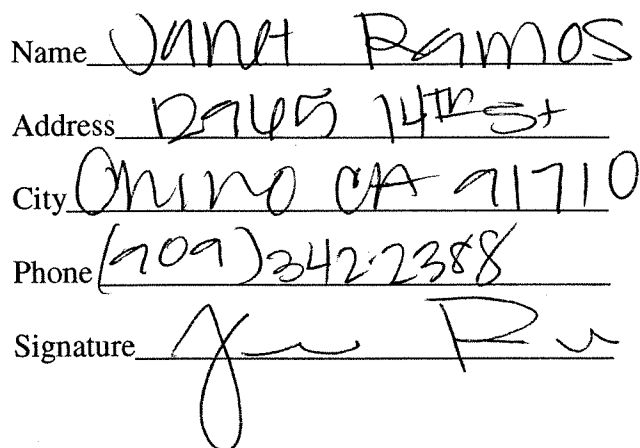 Name Janet Ramos
Address 12965 14th St
City Chino CA 91710
Phone (909)342-2388
Signature